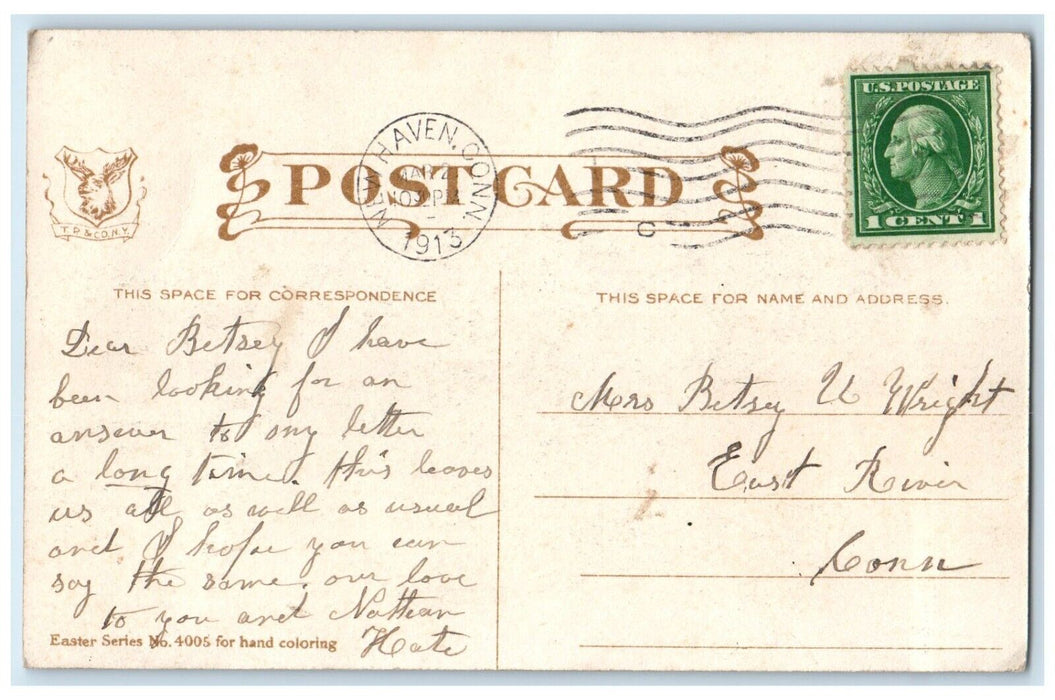 U.S. POSTAGE
1 CENT 1
NEW HAVEN, CONN.
1913
C
T. P. & CO. N.Y.
POST CARD
THIS SPACE FOR CORRESPONDENCE
THIS SPACE FOR NAME AND ADDRESS.
Dear Betsey I have
been looking for an
answer to my letter
a long time. this leaves
us all as well as usual
and I hope you can
say the same. our love
to you and Nathan
Kate
Easter Series No. 4005 for hand coloring
Mrs Betsey U Wright
East River
Conn